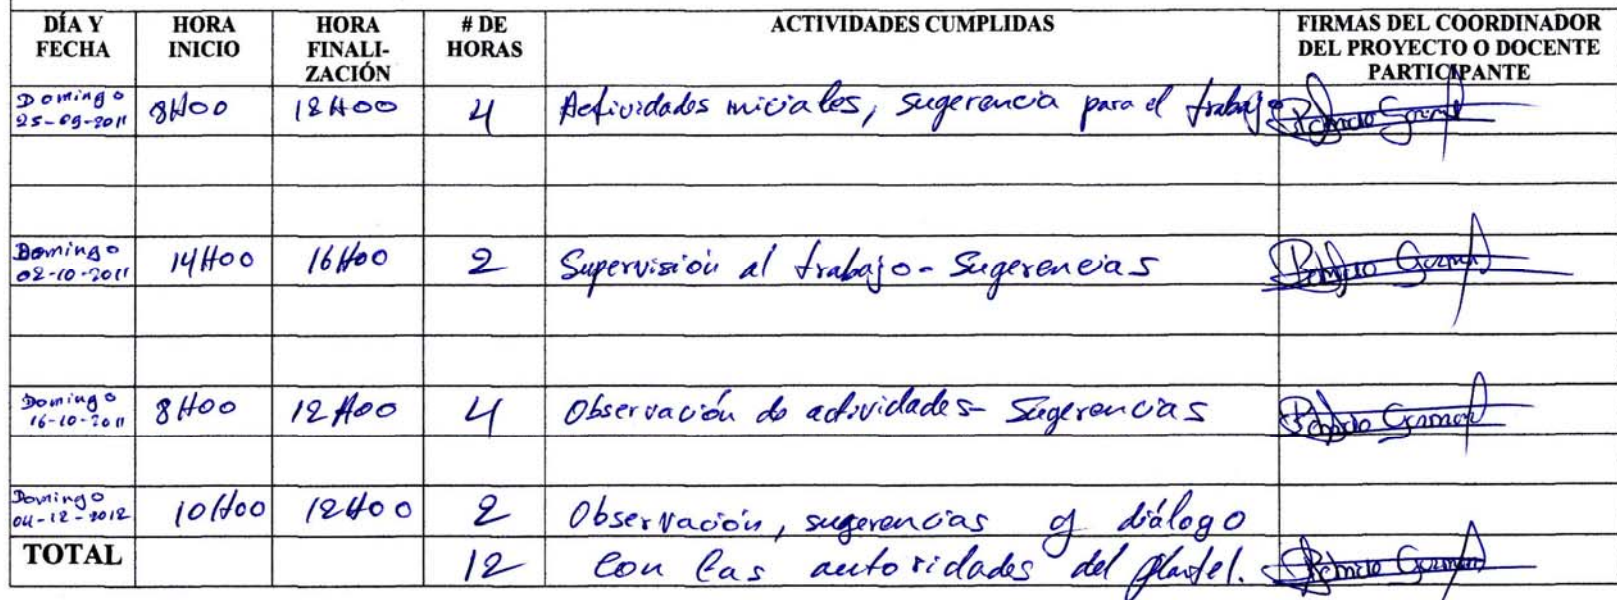 DÍA Y FECHA HORA INICIO HORA FINALI-ZACIÓN # DE HORAS ACTIVIDADES CUMPLIDAS FIRMAS DEL COORDINADOR DEL PROYECTO O DOCENTE PARTICIPANTE
Domingo 25-09-2011 8H00 12H00 4 Actividades iniciales, sugerencia para el trabajo
Domingo 02-10-2011 14H00 16H00 2 Supervisión al trabajo - Sugerencias
Domingo 16-10-2011 8H00 12H00 4 Observación de actividades - Sugerencias
Domingo 04-12-2012 10H00 12H00 2 Observación, sugerencias y diálogo
TOTAL 12 con las autoridades del plantel.